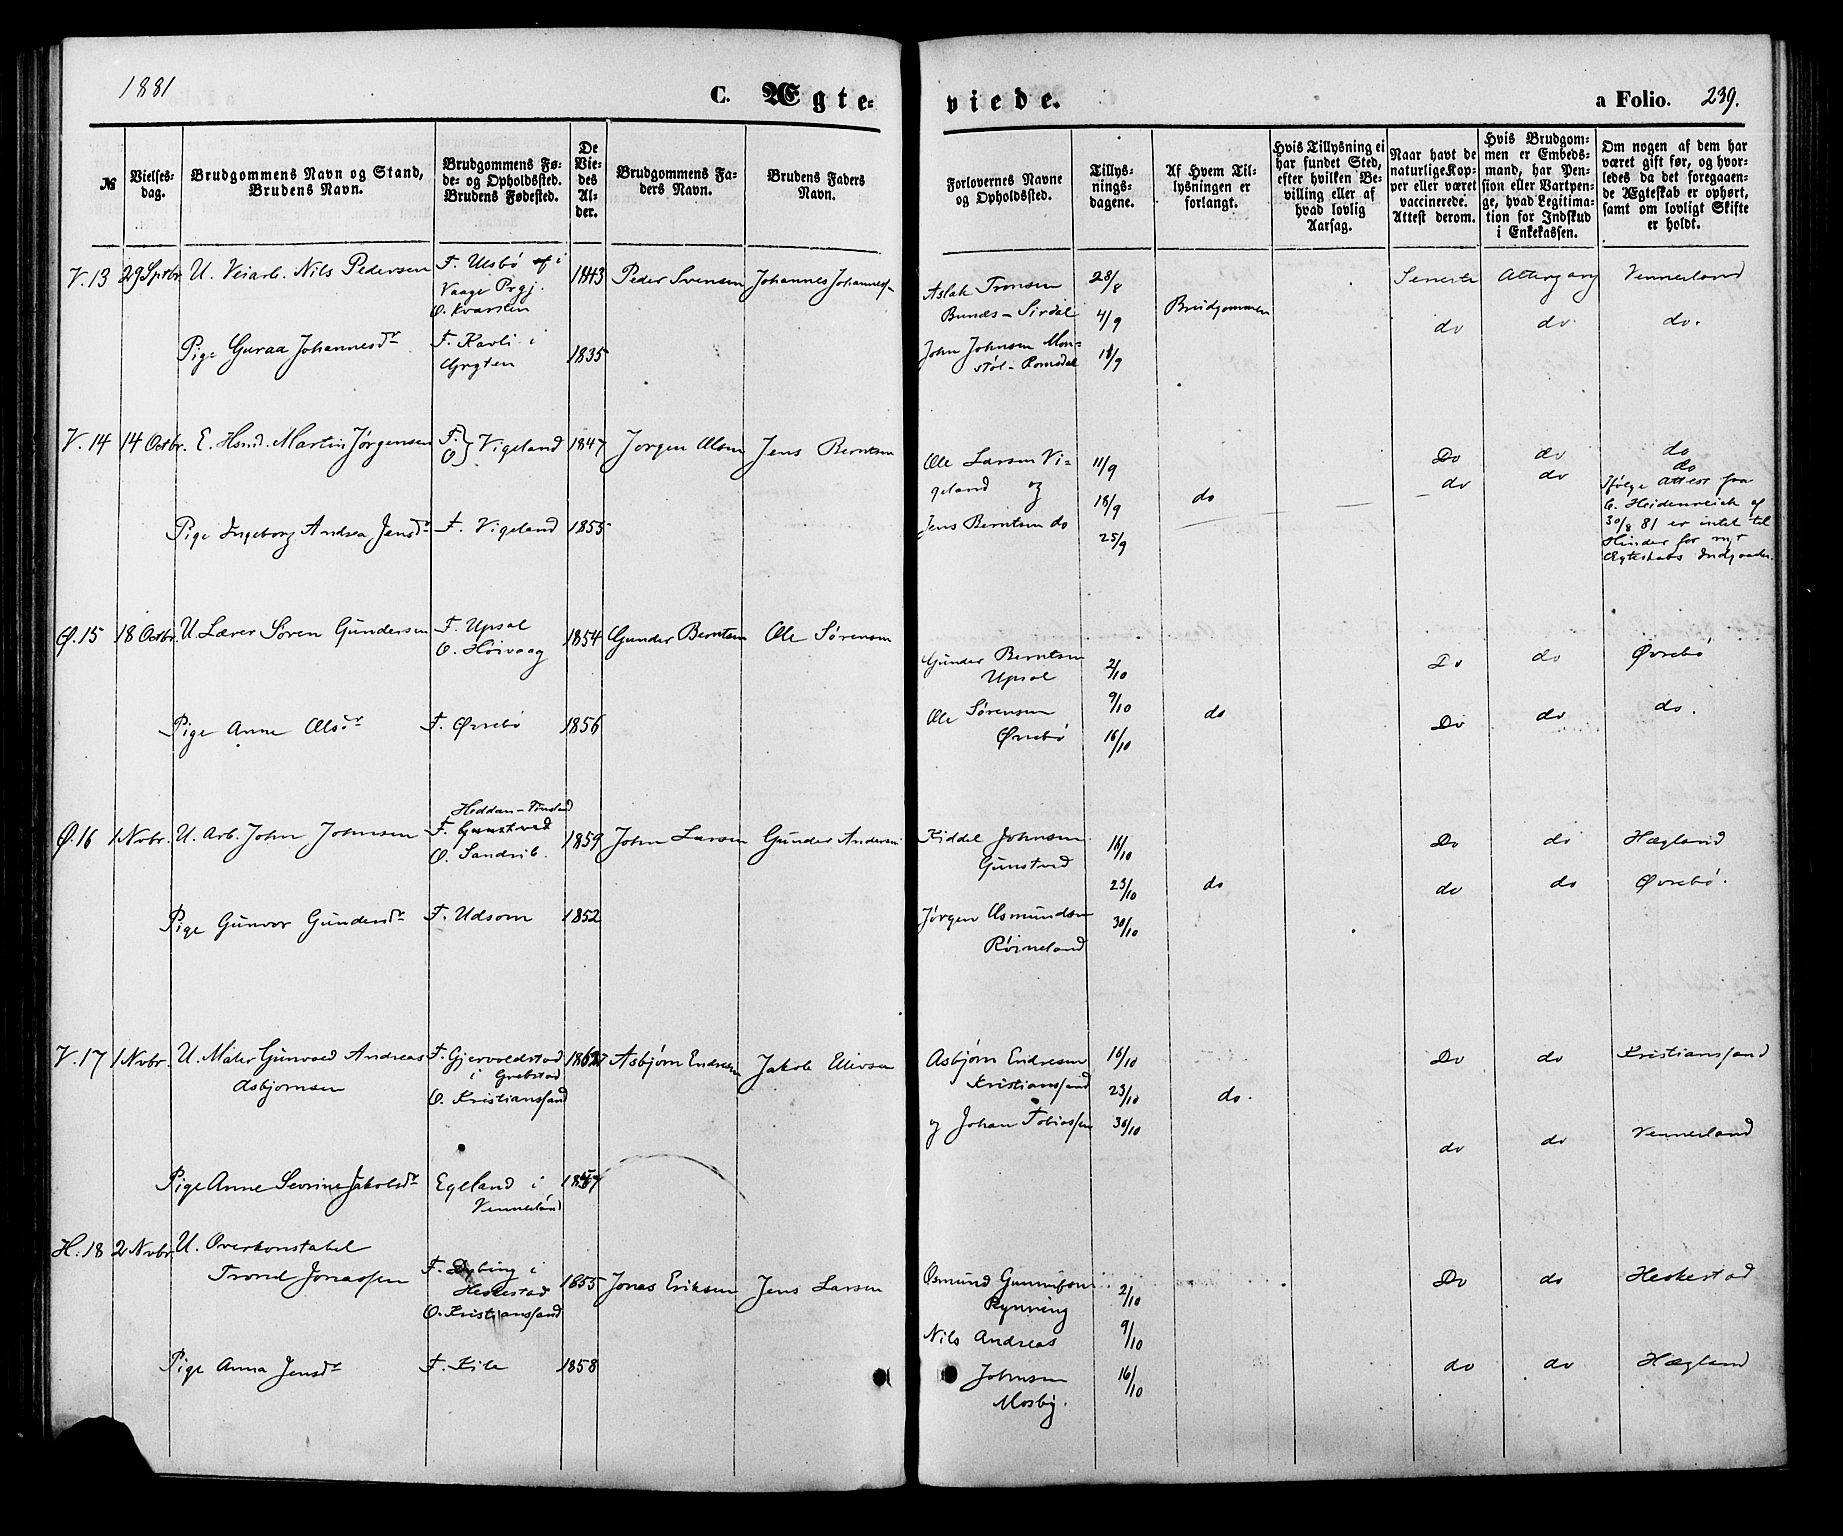 1881
C. Ægte-
viede.
a Folio. 239.
№
Vielses-
dag.
Brudgommens Navn og Stand,
Brudens Navn.
Brudgommens Fø-
de- og Opholdssted.
Brudens Fødested.
De
Vie-
des
Al-
der.
Brudgommens Fa-
ders Navn.
Brudens Faders
Navn.
Forlovernes Navne
og Opholdssted.
Tillys-
nings-
dagene.
Af Hvem Til-
lysningen er
forlangt.
Hvis Tillysning ei
har fundet Sted,
efter hvilken Be-
villing eller af
hvad lovlig
Aarsag.
Naar havt de
naturlige Kop-
per eller været
vaccinerede.
Attest derom.
Hvis Brudgom-
men er Embeds-
mand, har Pen-
sion eller Vartpen-
ge, hvad Legitima-
tion for Indskud
i Enkekassen.
Om nogen af dem har
været gift før, og hvor-
ledes da det foregaaen-
de Ægteskab er ophørt,
samt om lovligt Skifte
er holdt.
V. 13 29 Sptbr. U. Veiarb. Nils Pedersen F. Ulsbø i 1843 Peder Svensen Johannes Johanness-
Vaage Prgj.
O. Kvarsten
Pige Guraa Johannesdr F. Kavli i 1835
Grytten
Aslak Tronsen 28/8 Seneste Altergang Vennerland
Bunes - Sirdal 4/9 Brudgommen do do. do.
John Johnsen Mon- 11/9
støl - Romsdal
V. 14 14 Octbr. E. Hsmd. Martin Jørgensen F. O } Vigeland 1847 Jorgen Olsen Jens Berntsen
Pige Ingeborg Andrea Jensdr F. Vigeland 1855
Ole Larsen Vi- 11/9 Do do do
geland og 18/9 do do do do
Jens Berntsen do 25/9
Ifølge Attest fra
C. Heidenreich af
30/8 81 er intet til
Hinder for nyt
Ægteskabs Indgaaelse.
Ø. 15 18 Octbr. U. Lærer Søren Gundersen F. Upsal 1854 Gunder Berntsen Ole Sørensen
O. Høivaag
Pige Anne Olsdr F. Øvrebø 1856
Gunder Berntsen 2/10 Do do Øvrebø
Upsal
Ole Sørensen 9/10 do Do do do.
Øvrebø 16/10
Ø. 16 1 Novbr. U. Arb. John Johnsen F. Gunstved 1859 John Larsen Gunder Andersen
O. Sandrib.
Pige Gunvor Gundersdr F. Udsom 1852
Kiddel Johnsen 16/10 Do do Hægland
Gunstved
23/10 do do do Øvrebø.
Jørgen Asmundsen 30/10
Røineland
V. 17 1 Nvbr. U. Maler Gunvald Andreas F. Gjervoldstad 1862 Asbjørn Endresen Jakob Ellevsen
Asbjornsen i Grebstad
O. Kristianssand
Pige Anne Sevrine Jakobsdr Egeland i
Vennerland
Asbjørn Endresen 16/10 Do do Kristianssand
Kristianssand 23/10 do.
og Johan Tobiassen 30/10 do do Vennerland
H. 18 2 Nvbr. U. Overkonstabel
Trond Jonassen F. Dybing i 1855 Jonas Eriksen Jens Larsen
Heskestad
O. Kristianssand
Pige Anna Jensdr F. Kile 1858
Osmund Gunnufsen 2/10 Do do Heskestad
Rynning
Nils Andreas 9/10 do do Hægland
Johnsen 16/10
Mosby.